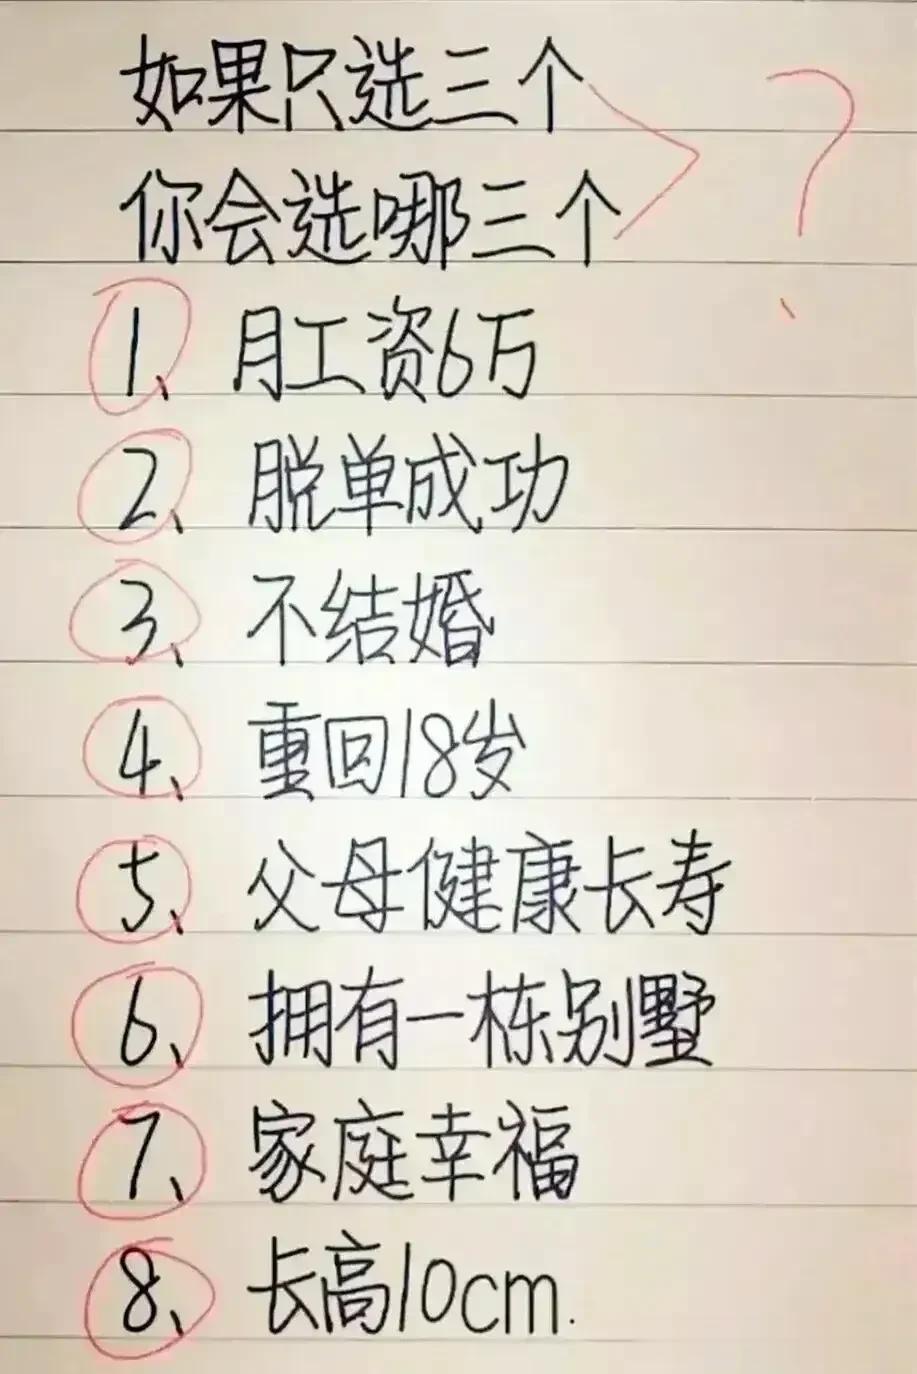 如果只选三个
你会选哪三个
?
1、月工资6万
2、脱单成功
3、不结婚
4、重回18岁
5、父母健康长寿
6、拥有一栋别墅
7、家庭幸福
8、长高10cm.